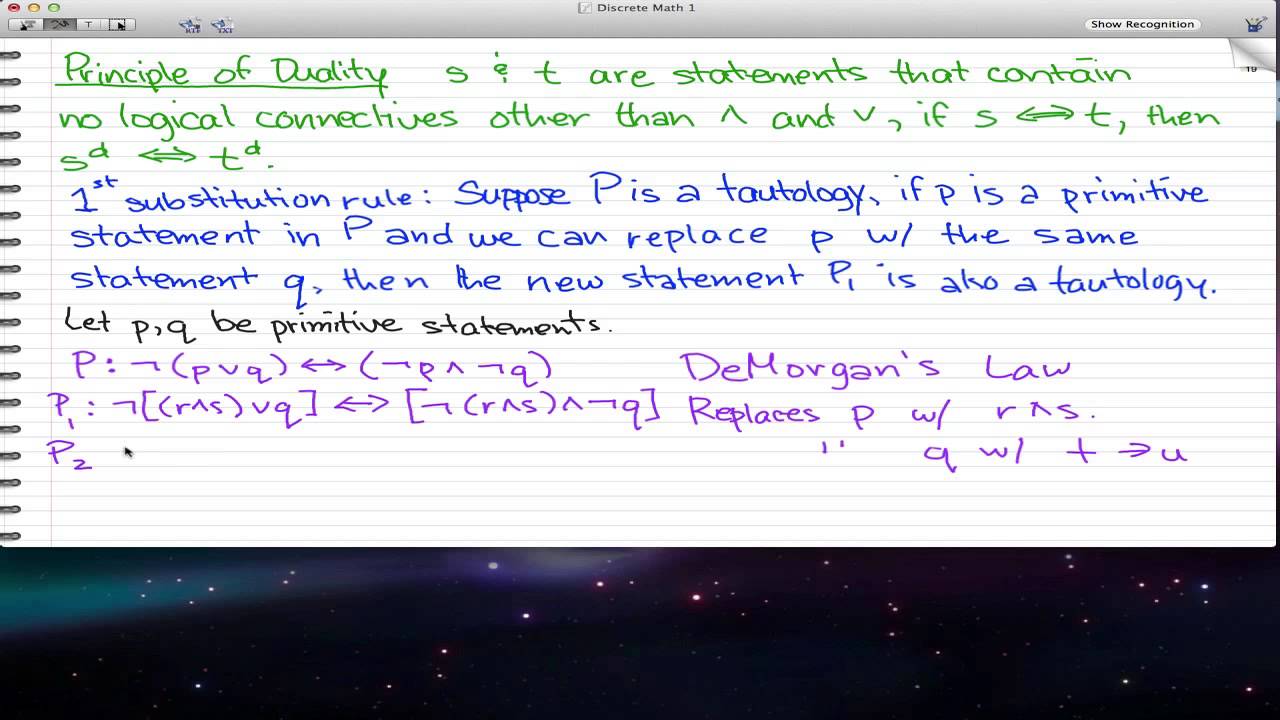 Discrete Math 1
T
RTF
TXT
Show Recognition
19
Principle of Duality s & t are statements that contain
no logical connectives other than ∧ and ∨, if s ⟺ t, then
s^d ⟺ t^d.
1^st substitution rule: Suppose P is a tautology, if p is a primitive
statement in P and we can replace p w/ the same
statement q, then the new statement P₁ is also a tautology.
Let p,q be primitive statements.
P: ¬(p∨q) ↔ (¬p∧¬q) DeMorgan's Law
P₁: ¬[(r∧s)∨q] ↔ [¬(r∧s)∧¬q] Replaces p w/ r∧s.
P₂ '' q w/ t → u